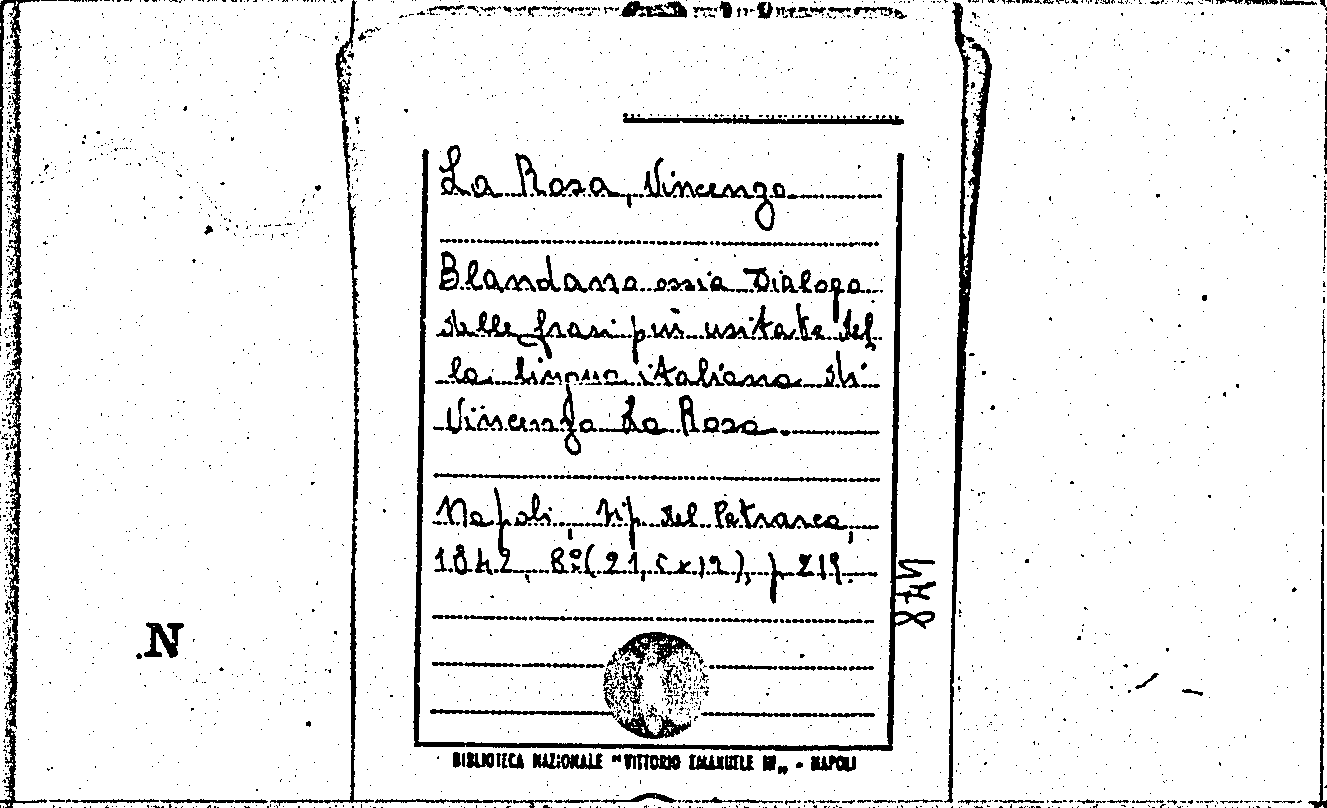 La Rosa, Vincenzo
Blandano ossia Dialogo
delle frasi più usitate del
la lingua italiana di
Vincenzo La Rosa.
Napoli, tip. del Petrarca,
1842, 8º (21,5x12), p. 219.
N
BIBLIOTECA NAZIONALE "VITTORIO EMANUELE III„ - NAPOLI